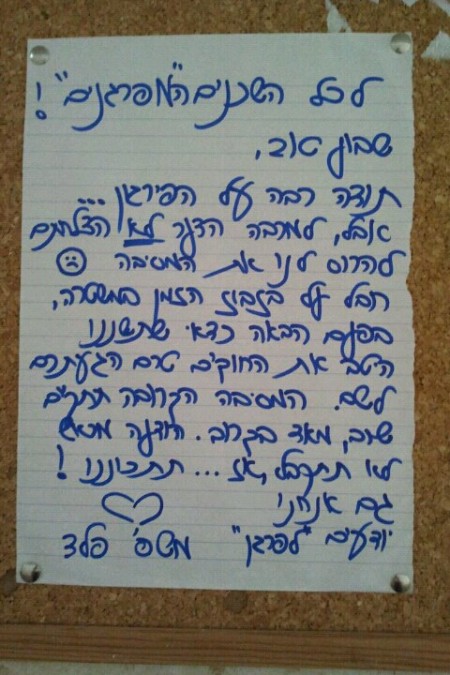 לכל השכנים ה"מפרגנים"!
שבוע טוב,
תודה רבה על הפירגון...
אבל, למרבה הדגר לא הצלחתם
להרוס לנו את המסיבה ☹
חבל על בזבוז הזמן במשטרה,
בפעם הבאה כדאי שתשננו
היטב את החוקים טרם הגעתכם
לשם. המסיבה הקרובה תתקיים
שוב, מאד בקרוב. הודעה
לא תתקבל, אז... תתכוננו!
גם אנחנו ♡
יודעים "לפרגן" משפ' פלד